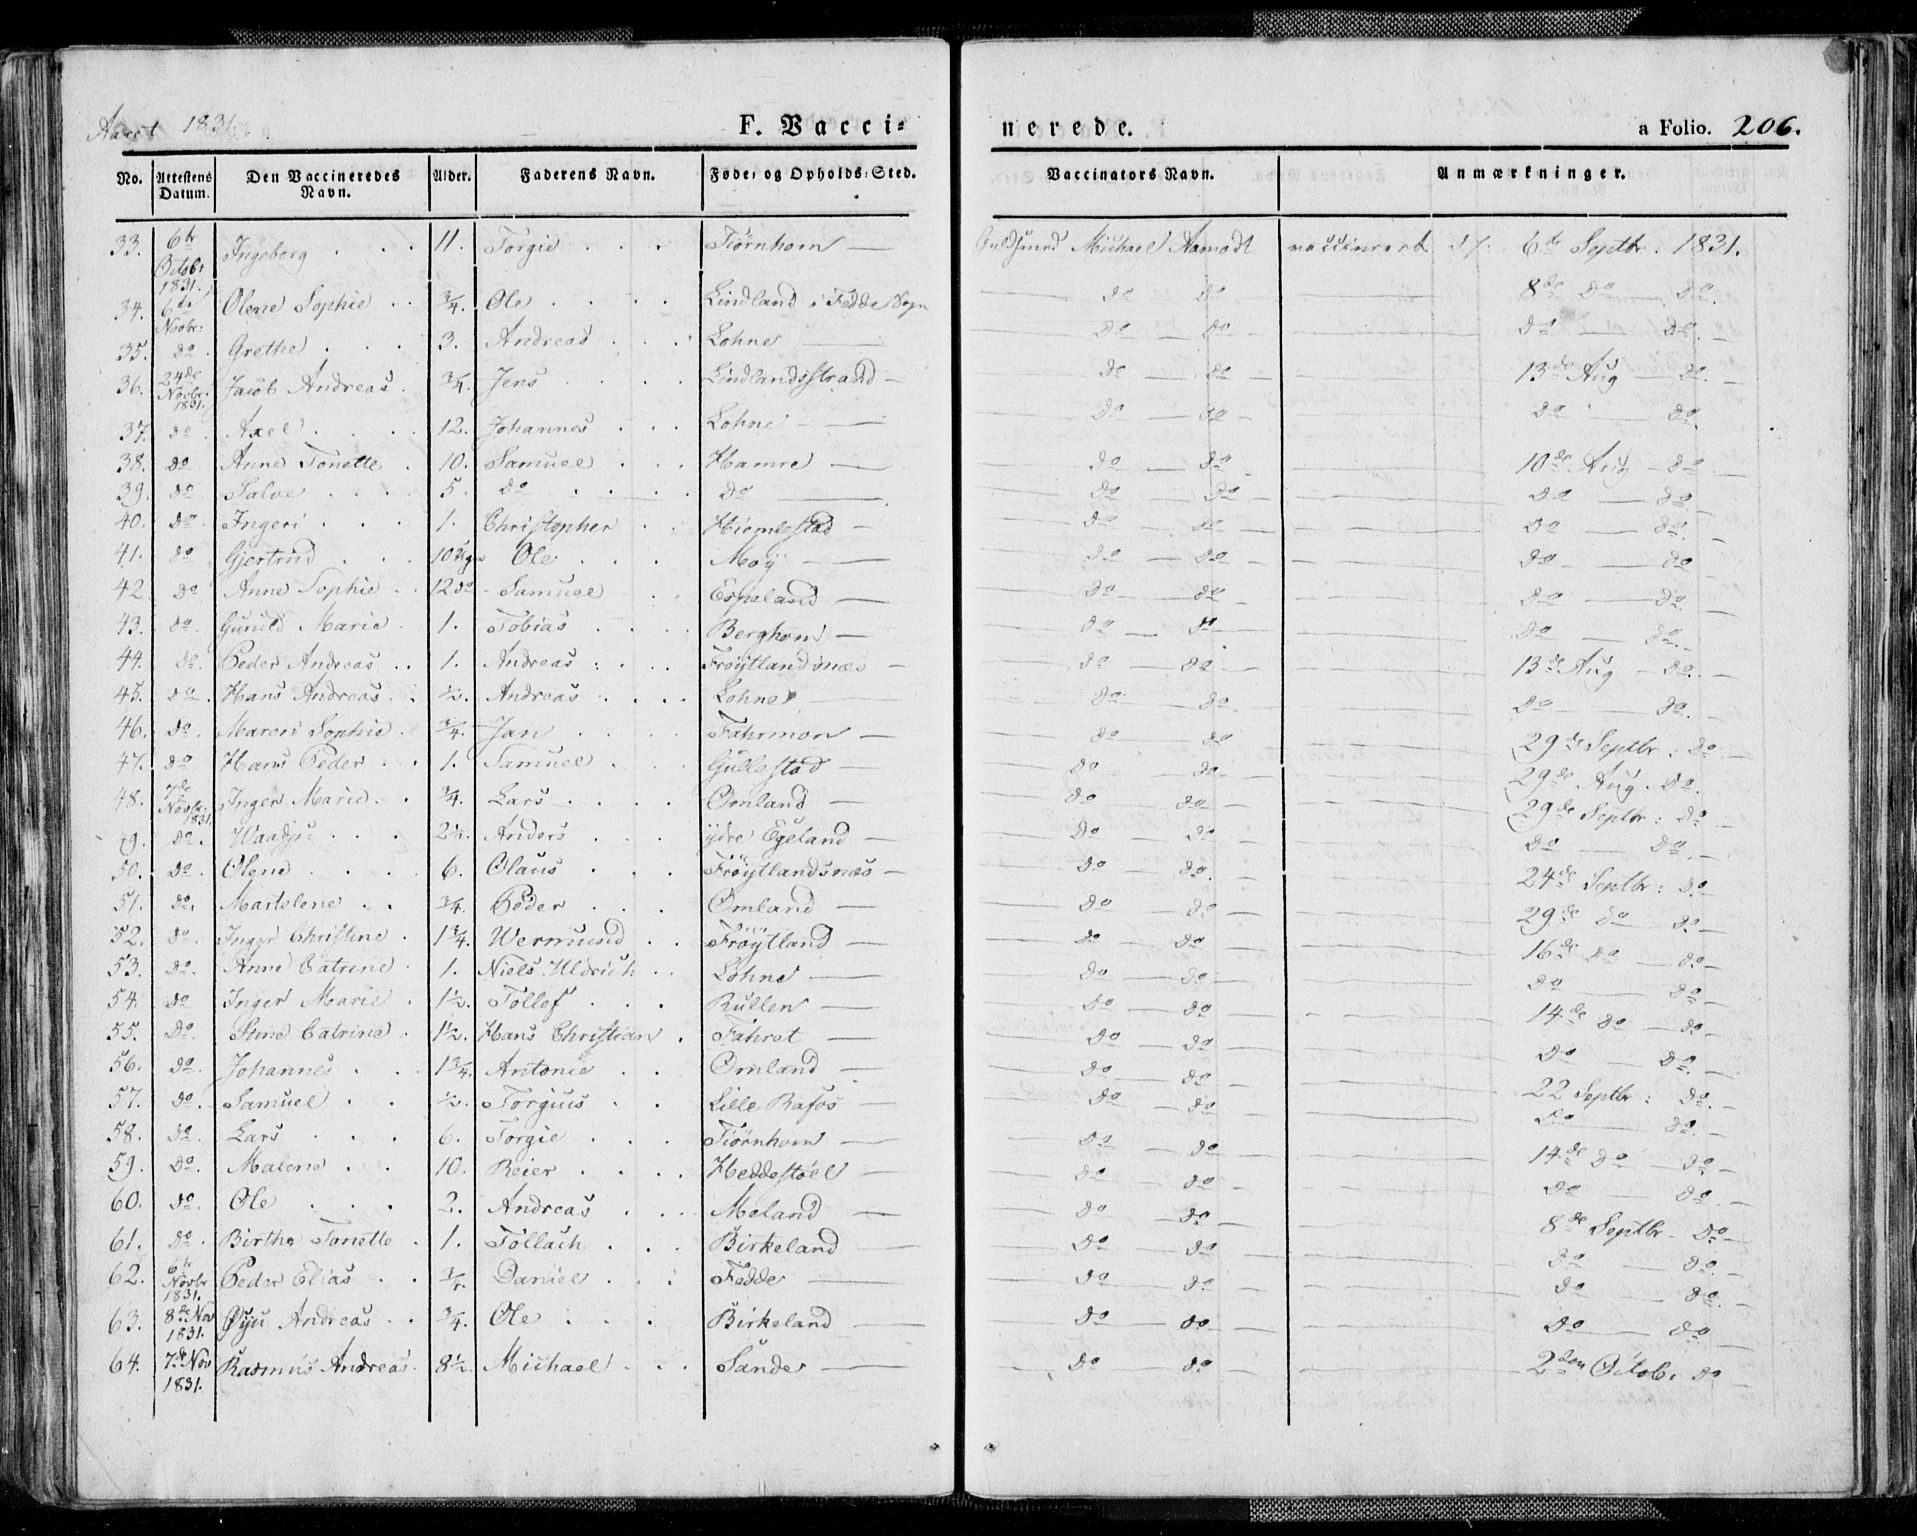 Aaret 1831.
F. Vacci= nerede. a Folio. 206.
No. Attestens Datum. Den Vaccineredes Navn. Alder. Faderens Navn. Føde= og Opholds=Sted. Vaccinators Navn. Anmærkninger.
33. 6te Octobr 1831. Ingeborg 11. Torgie Tiørnhom — Guldsmed Michael Aamodt vaccineret d: 6te Septbr. 1831.
34. 6te Novbr: Olene Sophie 3/4. Ole Lindland i Fedde Sogn do do 8de do do.
35. do. Grethe 3. Andreas Lohne do do do do.
36. 24de Novbr: 1831. Jacob Andreas 3/4. Jens Lindlandsstrand do do 13de Aug do.
37. do. Axel 12. Johannes Lohne do do do do.
38. do Anne Tonette 10. Samuel Hamre do do 10de Aug do
39. do Salve 5. do do do do do do
40. do. Ingeri 1. Christopher Hiemlestad do do do do.
41. do Gjertrud 10 Ole Moÿ do do do do
42. do Anne Sophie 12 do Samuel Espeland do do do do.
43. do. Gunild Marie 1. Tobias Berghom do do do do.
44. do. Peder Andreas 1. Andreas Frøÿtlandsnæs do do 13de Aug do.
45. do. Hans Andreas 1/2. Andreas Lohne do do. do do.
46. do. Maren Sophie 3/4. Jan Fahrmon do do 29de Septbr: do
47. do Hans Peder 1. Samuel Gullestad do do. 29de Aug. do.
48. 7de Novbr. 1831. Inger Marie 3/4. Lars Omland do do 29de Septbr: do
49. do. 2 1/2. Anders ÿdre Egeland do do do do.
50. do. Olene 6. Olaus Frøÿtlandsnæs do do. 24de Septbr: do
51. do. Martelene 3/4. Peder Omland do do 29de do do
52. do. Inger Christine 1 3/4. Wermund Frøÿtland do do 16de do do
53. do. Anne Catrine 1. Niels Uldrich Lohne do do do do
54. do Inger Marie 1 1/2. Tollef Rullen do do 14de do do
55. do Stine Catrine 1 1/2. Hans Christian Fahret do do do do.
56. do. Johannes 1 3/4. Antonie Omland do do 22 Septbr: do.
57. do. Samuel 1/2. Torgius Lille Rafos do do do do.
58. do. Lars 6. Torgie Tiørnhom do do 14de do do
59. do. Malene 10. Reier Heddestøel do do do do.
60. do. Ole 2. Andreas Meland do do 8de Septbr. do
61. do. Birthe Tonette 1. Tollach Birkeland do do do do.
62. 6te Novbr 1831. Peder Elias 3/4. Daniel Fedde do do do do.
63. 8de Nov 1831. Andreas 3/4. Ole Birkeland do do do do
64. 7de Nov 1831. Rasmus Andreas 8 1/2. Michael Sande do do 2den Octob: do